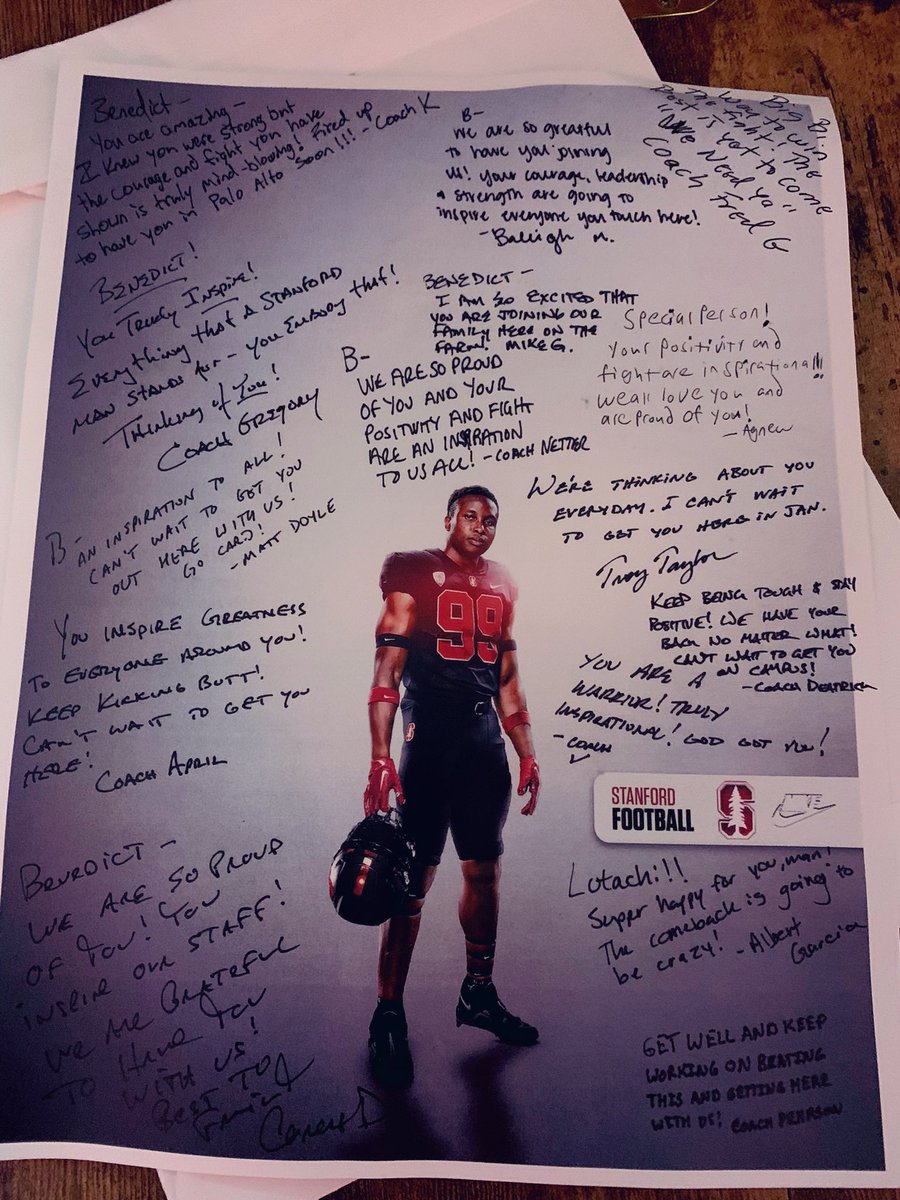 Benedict -
You are amazing -
I knew you were strong but
the courage and fight you have
shown is truly mind-blowing! Fired up
to have you in Palo Alto soon!!! - Coach K
B-
We are so greatful
to have you joining
us! Your courage, leadership
& strength are going to
inspire everyone you touch here!
- Baleigh M.
Big B!
The Way to win
the fight! The
Best is yet to come
"We Need Ya"
Coach Fred G
BENEDICT!
You Truly Inspire!
Everything that a STANFORD
MAN STANDS for - you EMBODY that!
Thinking of You!
COACH GREGORY
BENEDICT -
I AM SO EXCITED THAT
YOU ARE JOINING OUR
FAMILY HERE ON THE
FARM! MIKE G.
Special person!
Your positivity and
fight are inspirational!!!
we all love you and
are proud of you!
- Agnew
B-
WE ARE SO PROUD
OF YOU AND YOUR
POSITIVITY AND FIGHT
ARE AN INSPIRATION
TO US ALL! - COACH NETTER
B-
AN INSPIRATION TO ALL!
CAN'T WAIT TO GET YOU
OUT HERE WITH US!
GO CARD!
- MATT DOYLE
WE'RE THINKING ABOUT YOU
EVERYDAY. I CAN'T WAIT
TO GET YOU HERE IN JAN.
Troy Taylor
KEEP BEING TOUGH & STAY
POSITIVE! WE HAVE YOUR
BACK NO MATTER WHAT!
CAN'T WAIT TO GET YOU
ON CAMPUS!
- COACH DEATRICK
YOU INSPIRE GREATNESS
TO EVERYONE AROUND YOU!
KEEP KICKING BUTT!
CAN'T WAIT TO GET YOU
HERE!
COACH APRIL
YOU ARE A
WARRIOR! TRULY
INSPIRATIONAL! GOD GOT YOU!
- COACH V
99
STANFORD
FOOTBALL
BENEDICT -
WE ARE SO PROUD
OF YOU! YOU
INSPIRE OUR STAFF!
WE ARE GRATEFUL
TO HAVE YOU
WITH US!
BEST TO
Family
Coach D
Lotachi!!!
Super happy for you, man!
The comeback is going to
be crazy! - Albert
Garcia
GET WELL AND KEEP
WORKING ON BEATING
THIS AND GETTING HERE
WITH US! COACH PEARSON